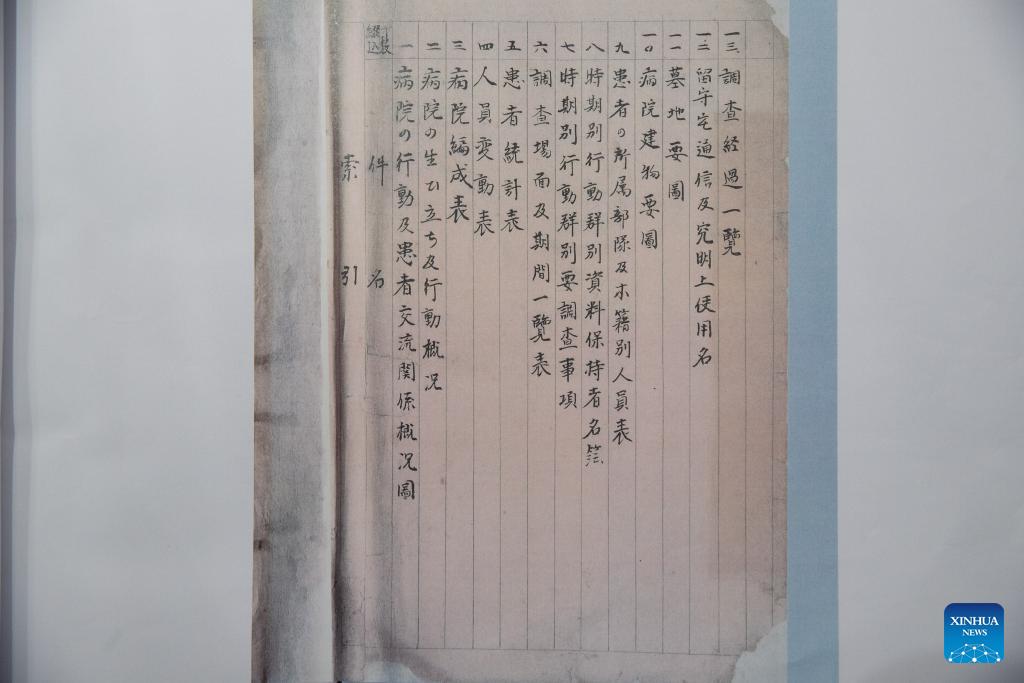 索引
件名
綴込
一 病院の行動及患者交流関係概況圖
二 病院の生ひ立ち及行動概況
三 病院編成表
四 人員変動表
五 患者統計表
六 調査場面及期間一覽表
七 時期別行動群別要調査事項
八 時期別行動群別資料保持者名簿
九 患者の所属部隊及本籍別人員表
一〇 病院建物要圖
一一 墓地要圖
一二 留守宅通信及究明上使用名
一三 調査経過一覽
XINHUA
NEWS